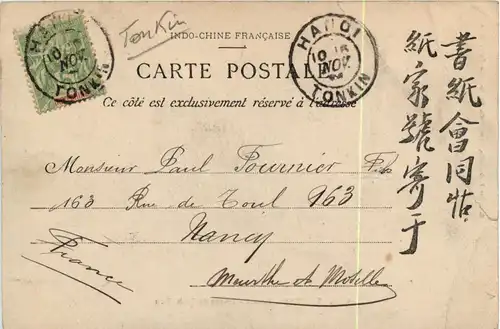 Tonkin
INDO-CHINE FRANÇAISE
HANOI
10
NOV
TONKIN
HANOI
10
NOV
TONKIN
CARTE POSTALE
Ce côté est exclusivement réservé à l'adresse
Monsieur Paul Fournier
163 Rue de Toul 163
Nancy
Meurthe et Moselle
France
書紙會同帖
紙家號寄于